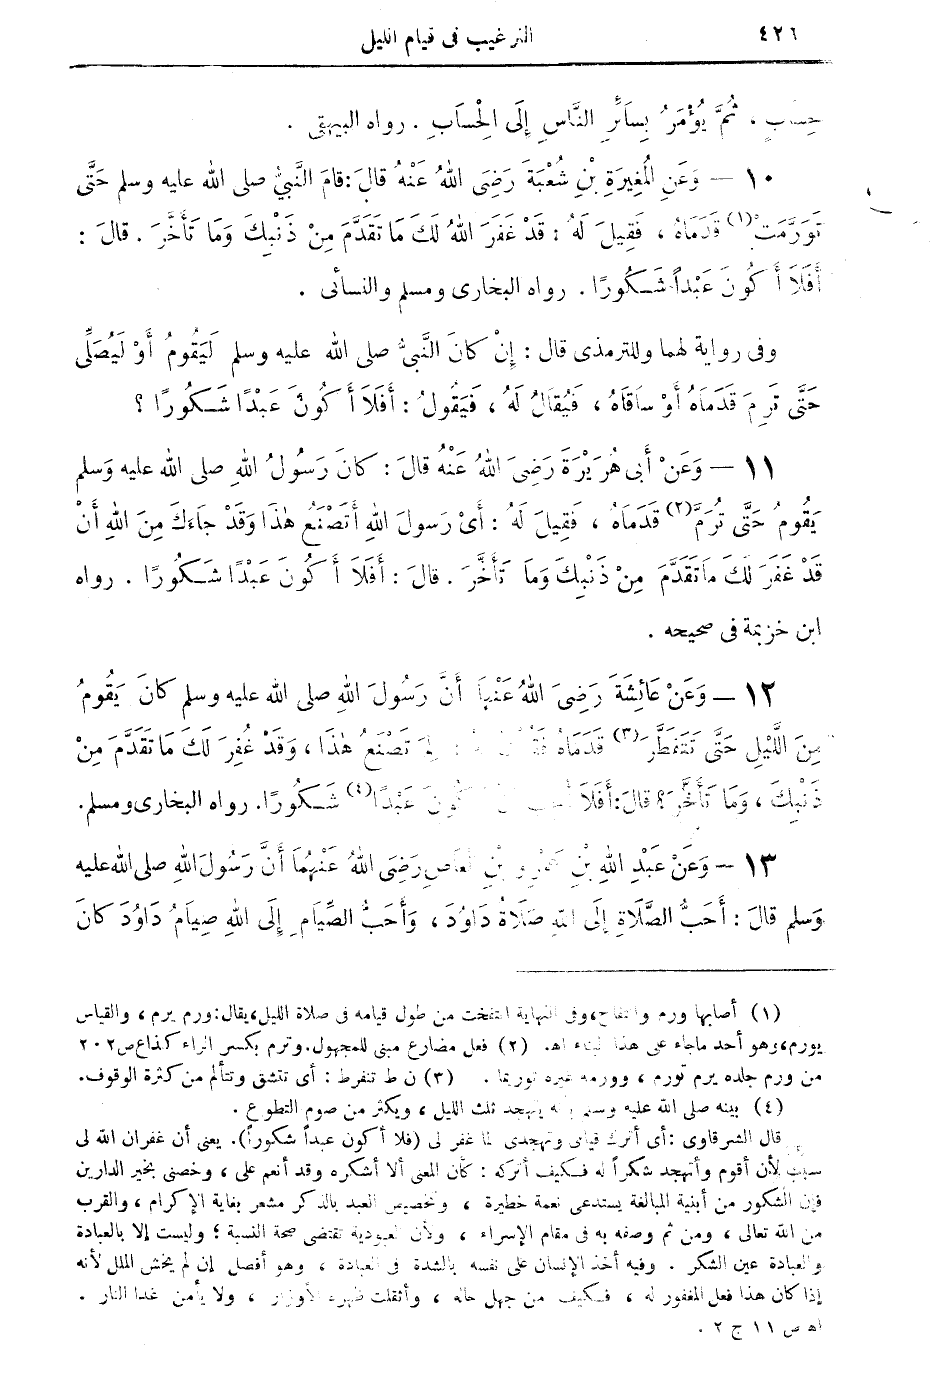 ٤٢٦
الترغيب فى قيام الليل
حِسَابٍ ، ثُمَّ يُؤْمَرُ بِسَائِرِ النَّاسِ إِلَى الْحِسَابِ . رواه البيهقى .
١٠ — وَعَنِ الْمُغِيرَةِ بْنِ شُعْبَةَ رَضِىَ اللهُ عَنْهُ قالَ : قامَ النَّبِىُّ صلى الله عليه وسلم حَتَّى
تَوَرَّمَتْ (١) قَدَمَاهُ ، فَقِيلَ لَهُ : قَدْ غَفَرَ اللهُ لَكَ مَا تَقَدَّمَ مِنْ ذَنْبِكَ وَمَا تَأَخَّرَ . قالَ :
أَفَلَا أَكُونَ عَبْداً شَكُورًا . رواه البخارى ومسلم والنسائى .
وفى رواية لهما وللترمذى قال : إِنْ كَانَ النَّبِىُّ صلى الله عليه وسلم لَيَقُومُ أَوْ لَيُصَلِّى
حَتَّى تَرِمَ قَدَمَاهُ أَوْ سَاقَاهُ ، فَيُقَالُ لَهُ ، فَيَقُولُ : أَفَلَا أَكُونَ عَبْدًا شَكُورًا ؟
١١ — وَعَنْ أَبى هُرَيْرَةَ رَضِىَ اللهُ عَنْهُ قالَ : كَانَ رَسُولُ اللهِ صلى الله عليه وَسلم
يَقُومُ حَتَّى تُرَمَّ (٢) قَدَمَاهُ ، فَقِيلَ لَهُ : أَىْ رَسولَ اللهِ أَتَصْنَعُ هٰذَا وَقَدْ جاءَكَ مِنَ اللهِ أَنْ
قَدْ غَفَرَ لَكَ مَاتَقَدَّمَ مِنْ ذَنْبِكَ وَمَا تَأَخَّرَ . قالَ : أَفَلَا أَكُونَ عَبْدًا شَكُورًا . رواه
ابن خزيمة فى صحيحه .
١٢ — وَعَنْ عَائِشَةَ رَضِىَ اللهُ عَنْهَا أَنَّ رَسُولَ اللهِ صلى الله عليه وسلم كانَ يَقُومُ
مِنَ اللَّيْلِ حَتَّى تَتَفَطَّرَ (٣) قَدَمَاهُ : لِمَ تَصْنَعُ هٰذَا ، وَقَدْ غُفِرَ لَكَ مَا تَقَدَّمَ مِنْ
ذَنْبِكَ ، وَمَا تَأَخَّرَ ؟ قالَ : أَفَلَا أَكُونَ عَبْدًا (٤) شَكُورًا . رواه البخارى ومسلم .
١٣ — وَعَنْ عَبْدِ اللهِ بْنِ عَمْرِو بْنِ الْعَاصِ رَضِىَ اللهُ عَنْهُمَا أَنَّ رَسُولَ اللهِ صلى الله عليه
وَسلم قالَ : أَحَبُّ الصَّلَاةِ إِلَى اللهِ صَلَاةُ دَاوُدَ ، وَأَحَبُّ الصِّيَامِ إِلَى اللهِ صِيَامُ دَاوُدَ كَانَ
(١) أصابها ورم وانتفاخ ، وفى النهاية انتفخت من طول قيامه فى صلاة الليل ، يقال : ورم يرم ، والقياس
يورم ، وهو أحد ماجاء على هذا البناء اهـ . (٢) فعل مضارع مبنى للمجهول . وترم بكسر الراء كذا ع ص ٢٠٢
من ورم جلده يرم تورم ، وورمه غيره توريما . (٣) ن ط تنفرط : أى تتشق وتتألم من كثرة الوقوف .
(٤) بينه صلى الله عليه وسلم يتهجد ثلث الليل ، ويكثر من صوم التطوع .
قال الشرقاوى : أى أترك قيامى وتهجدى لما غفر لى (فلا أكون عبداً شكوراً) . يعنى أن غفران الله لى
سبب لأن أقوم وأتهجد شكراً له فكيف أتركه : كأن المعنى ألا أشكره وقد أنعم على ، وخصنى بخير الدارين
فإن الشكور من أبنية المبالغة يستدعى نعمة خطيرة ، وتخصيص العبد بالذكر مشعر بغاية الإكرام ، والقرب
من الله تعالى ، ومن ثم وصفه به فى مقام الإسراء ، ولأن العبودية تقتضى صحة النسبة ؛ وليست إلا بالعبادة
والعبادة عين الشكر . وفيه أخذ الإنسان على نفسه بالشدة فى العبادة ، وهو أفضل إن لم يخش الملل لأنه
إذا كان هذا فعل المغفور له ، فكيف من جهل حاله ، وأثقلت ظهره الأوزار ، ولا يأمن غدا النار .
اهـ ص ١١ ج ٢ .